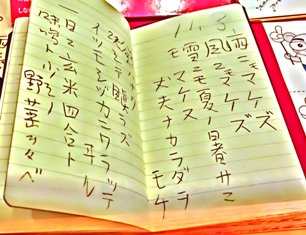 11.3.
雨ニモマケズ
風ニモマケズ
雪ニモ夏ノ暑サニ
モマケヌ
丈夫ナカラダヲ
モチ
決シテ瞋ラズ
イツモシヅカニワラッテ
ヰル
一日ニ玄米四合ト
味噌ト少シノ
野菜ヲタベ